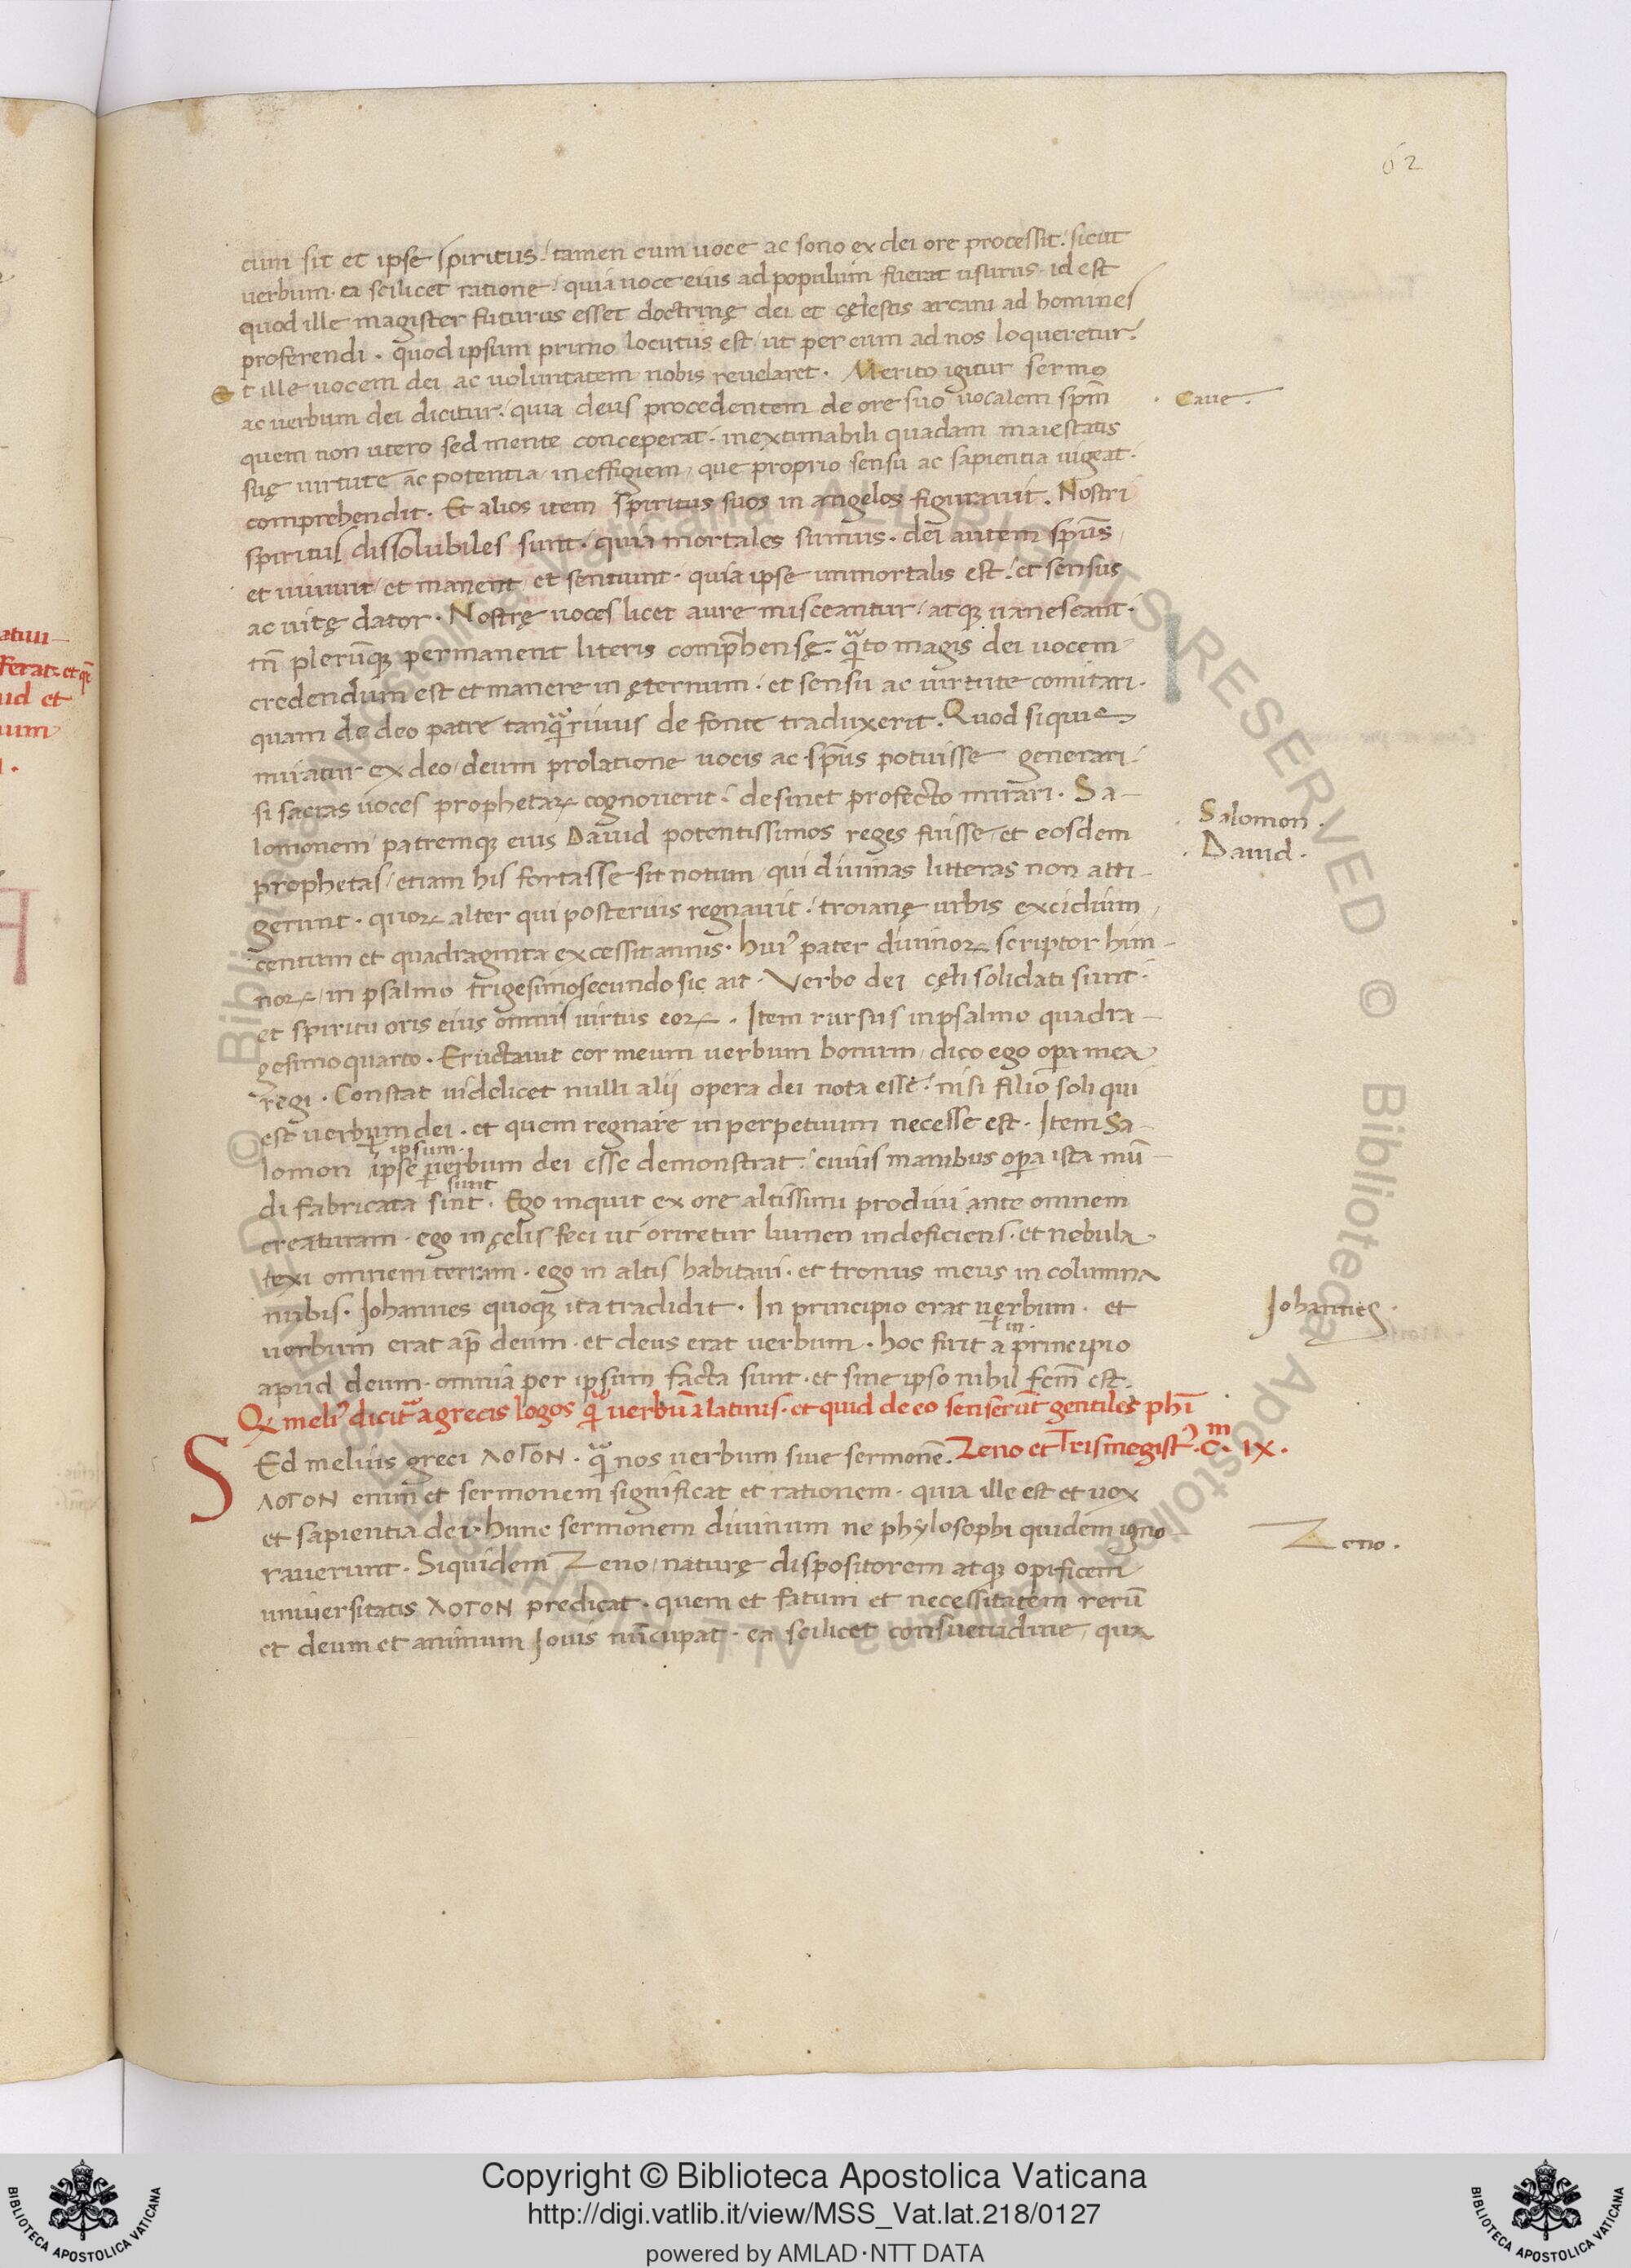 62
cum sit et ipse spiritus / tamen cum uoce ac sono ex dei ore processit : sicut
uerbum · ea scilicet ratione / quia uoce eius ad populum fuerat usurus · id est
quod ille magister futurus esset doctrinę dei et cęlestis arcani ad homines
proferendi · quod ipsum primo locutus est / ut per eum ad nos loqueretur :
Et ille uocem dei ac uoluntatem nobis reuelaret · Merito igitur sermo
ac uerbum dei dicitur : quia deus procedentem de ore suo uocalem spm̄
· Caue ·
quem non utero sed mente conceperat · inextimabili quadam maiestatis
suę uirtute ac potentia / in effigiem / que proprio sensu ac sapientia uigeat ·
comprehendit · Et alios item spiritus suos in angelos figurauit · Nostri
spiritus dissolubiles sunt · quia mortales sumus · dei autem spūs
et uiuunt / et manent / et sentiunt · quia ipse immortalis est : et sensus
ac uitę dator · Nostrę uoces licet aure misceantur / atq; uanescant ·
tn̄ plerūq; permanent literis comp̄hensę · quāto magis dei uocem
credendum est et manere in ęternum · et sensu ac uirtute comitari ·
quam de deo patre tanq̄ riuus de fonte traduxerit · Quod siquis
miratur ex deo / deum prolatione uocis ac spūs potuisse generari :
si sacras uoces prophetaꝝ cognouerit : desinet profecto mirari · Sa-
lomonem / patremq; eius Dauid potentissimos reges fuisse / et eosdem
· Salomon ·
· Dauid ·
prophetas / etiam his fortasse sit notum / qui diuinas litteras non atti-
gerunt · quoꝝ alter qui posterius regnauit : troianę urbis excidium
centum et quadraginta excessit annis · huiꝰ pater diuinoꝝ scriptor him-
noꝝ / in psalmo trigesimosecundo sic ait · Verbo dei cęli solidati sunt ·
et spiritu oris eius omnis uirtus eoꝝ · Item rursus in psalmo quadra-
gesimoquarto · Eructauit cor meum uerbum bonum / dico ego opa mea
regi · Constat uidelicet nulli alii opera dei nota esse : nisi filio soli qui
est uerbum dei · et quem regnare in perpetuum necesse est · Item Sa-
ipsum ·
lomon ipse uerbum dei esse demonstrat : cuius manibus opa ista mū-
sunt
di fabricata sint · Ego inquit ex ore altissimi prodiui ante omnem
creaturam · ego in cęlis feci ut oriretur lumen indeficiens · et nebula
texi omnem terram · ego in altis habitaui · et tronus meus in columna
nubis · Johannes quoq; ita tradidit · In principio erat uerbum · et
Johannes ·
in ·
uerbum erat ap̄ deum · et deus erat uerbum · hoc fuit a principio
apud deum · omnia per ipsum facta sunt · et sine ipso nihil fcm̄ est ·
Qꝫ meliꝰ dicit̄ a grecis logos q̄ uerbū a latinis · et quid de eo senserūt gentiles phī
Sed melius greci ΛΟΓΟΝ · q̄ nos uerbum siue sermonē · Zeno et Trismegistꝰ · cᵐ · IX ·
ΛΟΓΟΝ enim et sermonem significat et rationem · quia ille est et uox
et sapientia dei · hunc sermonem diuinum ne phylosophi quidem igno-
Zeno ·
rauerunt · Siquidem Zeno / naturę dispositorem atq; opificem
uniuersitatis ΛΟΓΟΝ predicat · quem et fatum et necessitatem rerū
et deum et animum Jouis nūcupat · ea scilicet consuetudine / qua
Copyright © Biblioteca Apostolica Vaticana
http://digi.vatlib.it/view/MSS_Vat.lat.218/0127
powered by AMLAD·NTT DATA